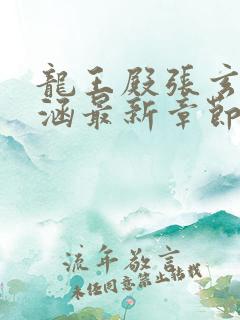 龍王殿張玄
涵最新章節
流年敬言
未任同意禁止轉載